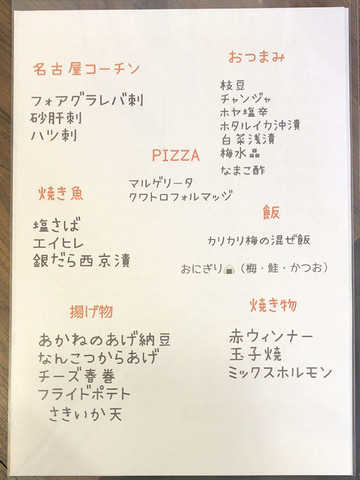 名古屋コーチン
フォアグラレバ刺
砂肝刺
ハツ刺
おつまみ
枝豆
チャンジャ
ホヤ塩辛
ホタルイカ沖漬
白菜浅漬
梅水晶
なまこ酢
PIZZA
マルゲリータ
クワトロフォルマッジ
焼き魚
塩さば
エイヒレ
銀だら西京漬
飯
カリカリ梅の混ぜ飯
おにぎり🍙（梅・鮭・かつお）
揚げ物
あかねのあげ納豆
なんこつからあげ
チーズ春巻
フライドポテト
さきいか天
焼き物
赤ウィンナー
玉子焼
ミックスホルモン